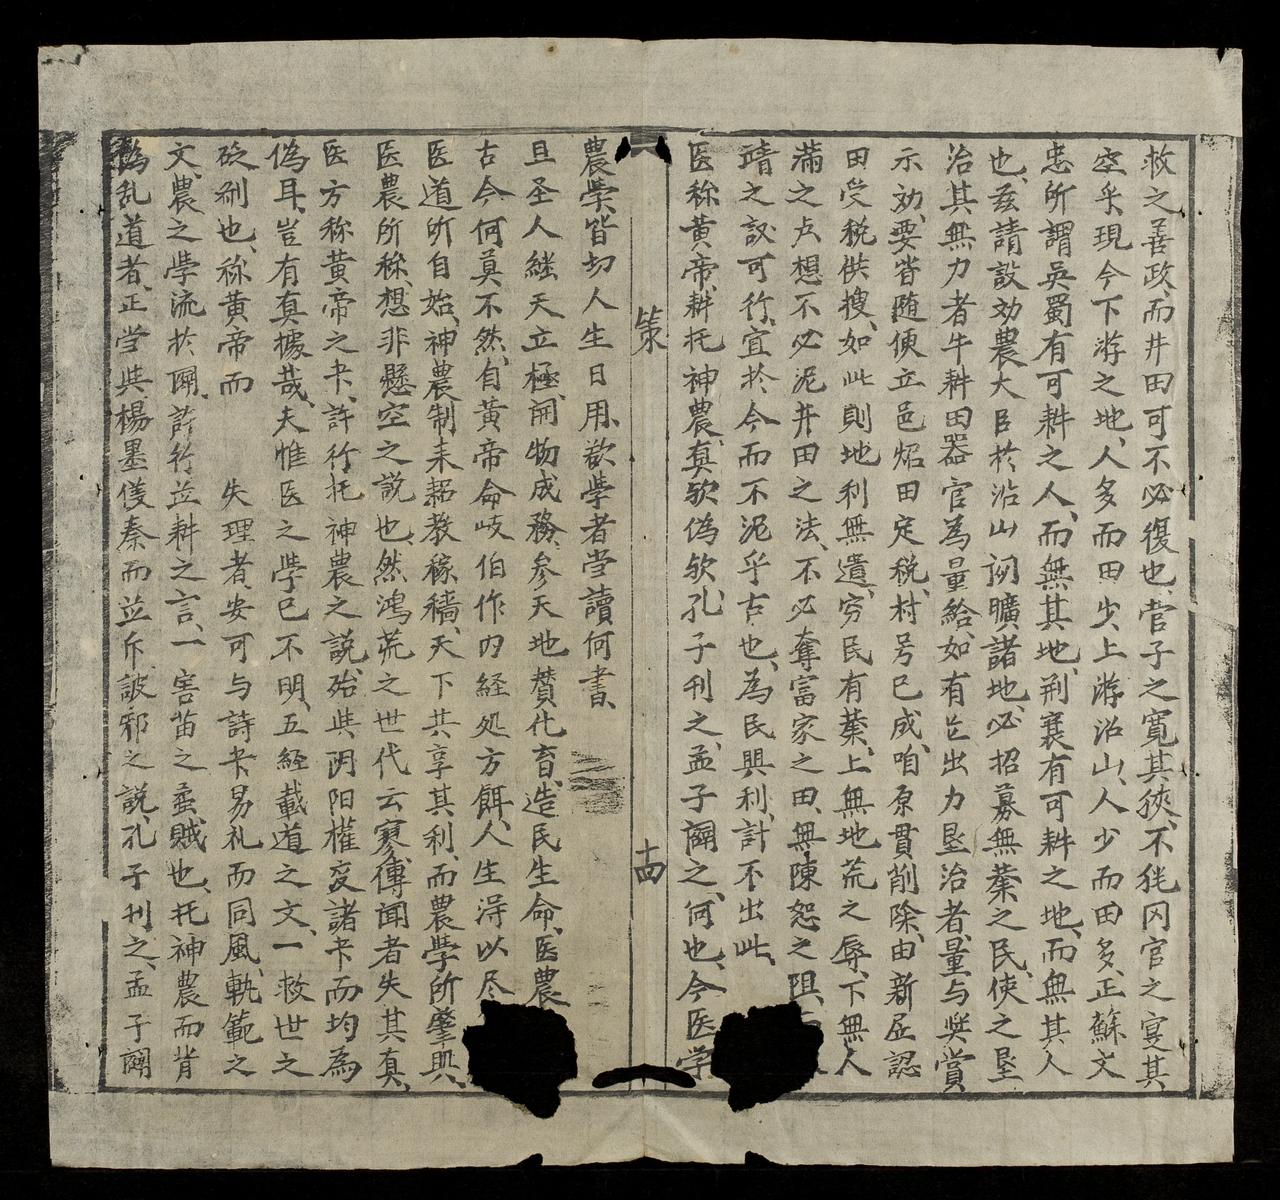 救之善政、而井田可不必復也、管子之寛其狹、不能冈官之寔其
空乎、現今下游之地、人多而田少、上游沿山、人少而田多、正蘇文
忠所謂吳蜀有可耕之人、而無其地、荆襄有可耕之地、而無其人
也、茲請設効農大臣於沿山閒曠諸地、必招募無業之民、使之墾
治、其無力者牛耕田器官為量給、如有乞出力墾治者、量与奨賞
示劝、要皆随便立邑炤田定税、村号已成、咱原貫削除、由新届認
田受税供搜、如此則地利無遺、穷民有業、上無地荒之辱、下無人
滿之㦯、想不必泥井田之法、不必奪富家之田、無陳恕之阻、
靖之訟可行、宜於今而不泥乎古也、為民興利、計不出此、
医称黄帝、耕托神農、真欤偽欤、孔子刊之、孟子闢之、何也、今医学
策
十四
農學、皆切人生日用、欲學者当讀何書、
且圣人継天立極、開物成務、参天地賛化育、造民生命、医農
古今何莫不然、自黄帝命岐伯作内経処方餌、人生淂以尽
医道所自始、神農制耒耜教稼穡、天下共享其利、而農學所肇興、
医農所称、想非懸空之説也、然鴻荒之世代云寥、傳聞者失其真、
医方称黄帝之书、許行托神農之說、殆與阴阳權变諸书而均為
偽耳、豈有真據哉、夫惟医之學已不明、五経載道之文、一救世之
砭剂也、称黄帝而失理者、安可与詩书易礼而同風、軌範之
文、農之學流於閙、許行並耕之言、一害苗之蟊賊也、托神農而背
偽乱道者、正当與楊墨儀秦而並斥、詖邪之說、孔子刊之、孟子闢